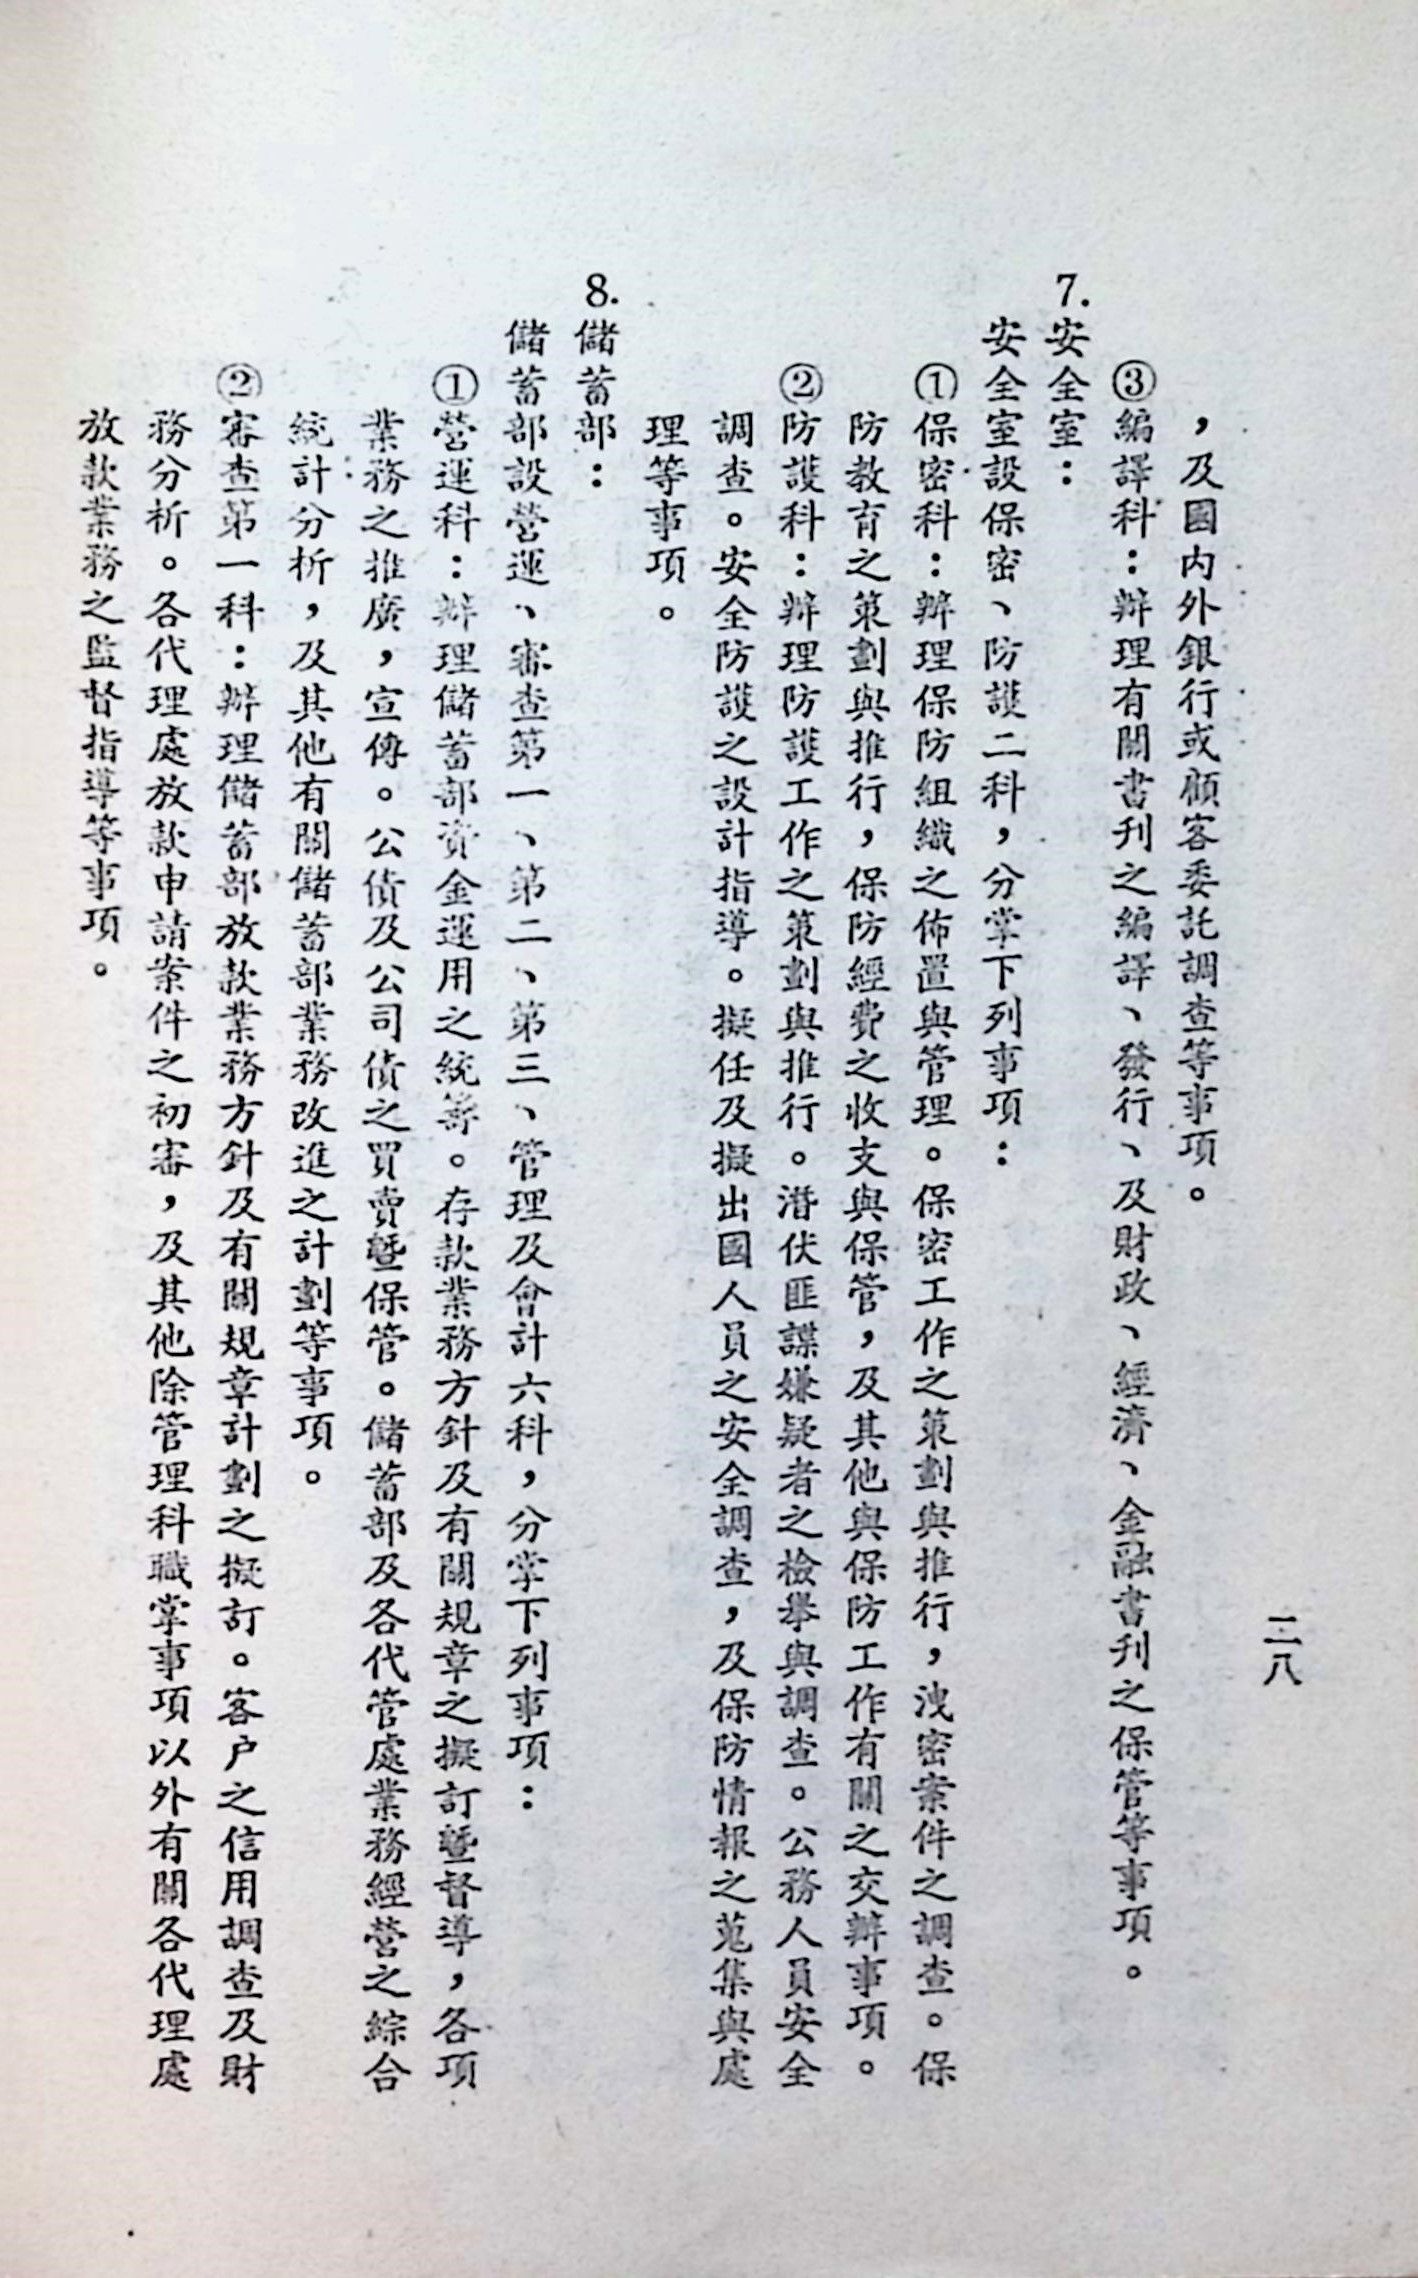 二八
，及國內外銀行或顧客委託調查等事項。
③編譯科：辦理有關書刊之編譯、發行、及財政、經濟、金融書刊之保管等事項。
7.安全室：
安全室設保密、防護二科，分掌下列事項：
①保密科：辦理保防組織之佈置與管理。保密工作之策劃與推行，洩密案件之調查。保
防教育之策劃與推行，保防經費之收支與保管，及其他與保防工作有關之交辦事項。
②防護科：辦理防護工作之策劃與推行。潛伏匪諜嫌疑者之檢舉與調查。公務人員安全
調查。安全防護之設計指導。擬任及擬出國人員之安全調查，及保防情報之蒐集與處
理等事項。
8.儲蓄部：
儲蓄部設營運、審查第一、第二、第三、管理及會計六科，分掌下列事項：
①營運科：辦理儲蓄部資金運用之統籌。存款業務方針及有關規章之擬訂暨督導，各項
業務之推廣，宣傳。公債及公司債之買賣暨保管。儲蓄部及各代管處業務經營之綜合
統計分析，及其他有關儲蓄部業務改進之計劃等事項。
②審查第一科：辦理儲蓄部放款業務方針及有關規章計劃之擬訂。客户之信用調查及財
務分析。各代理處放款申請案件之初審，及其他除管理科職掌事項以外有關各代理處
放款業務之監督指導等事項。